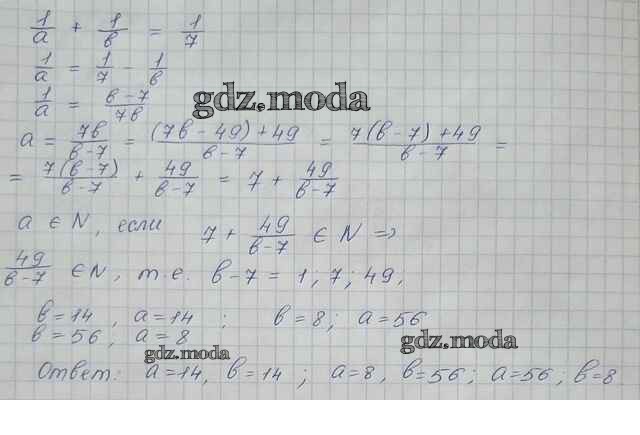 1/a + 1/в = 1/7
1/a = 1/7 - 1/в
1/a = (в-7)/7в
gdz.moda
a = 7в/(в-7) = ((7в-49)+49)/(в-7) = (7(в-7)+49)/(в-7) =
= 7(в-7)/(в-7) + 49/(в-7) = 7 + 49/(в-7)
a ∈ N, если 7 + 49/(в-7) ∈ N =>
49/(в-7) ∈ N, т.е. в-7 = 1; 7; 49,
в=14, a=14; в=8; a=56
в=56, a=8
gdz.moda
gdz.moda
Ответ: a=14, в=14; a=8, в=56; a=56; в=8